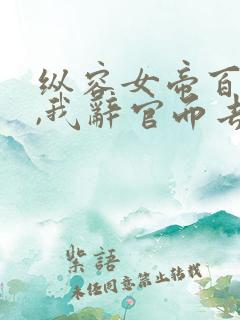 纵容女帝百
,我辞官而去
紫語
未经同意禁止转载